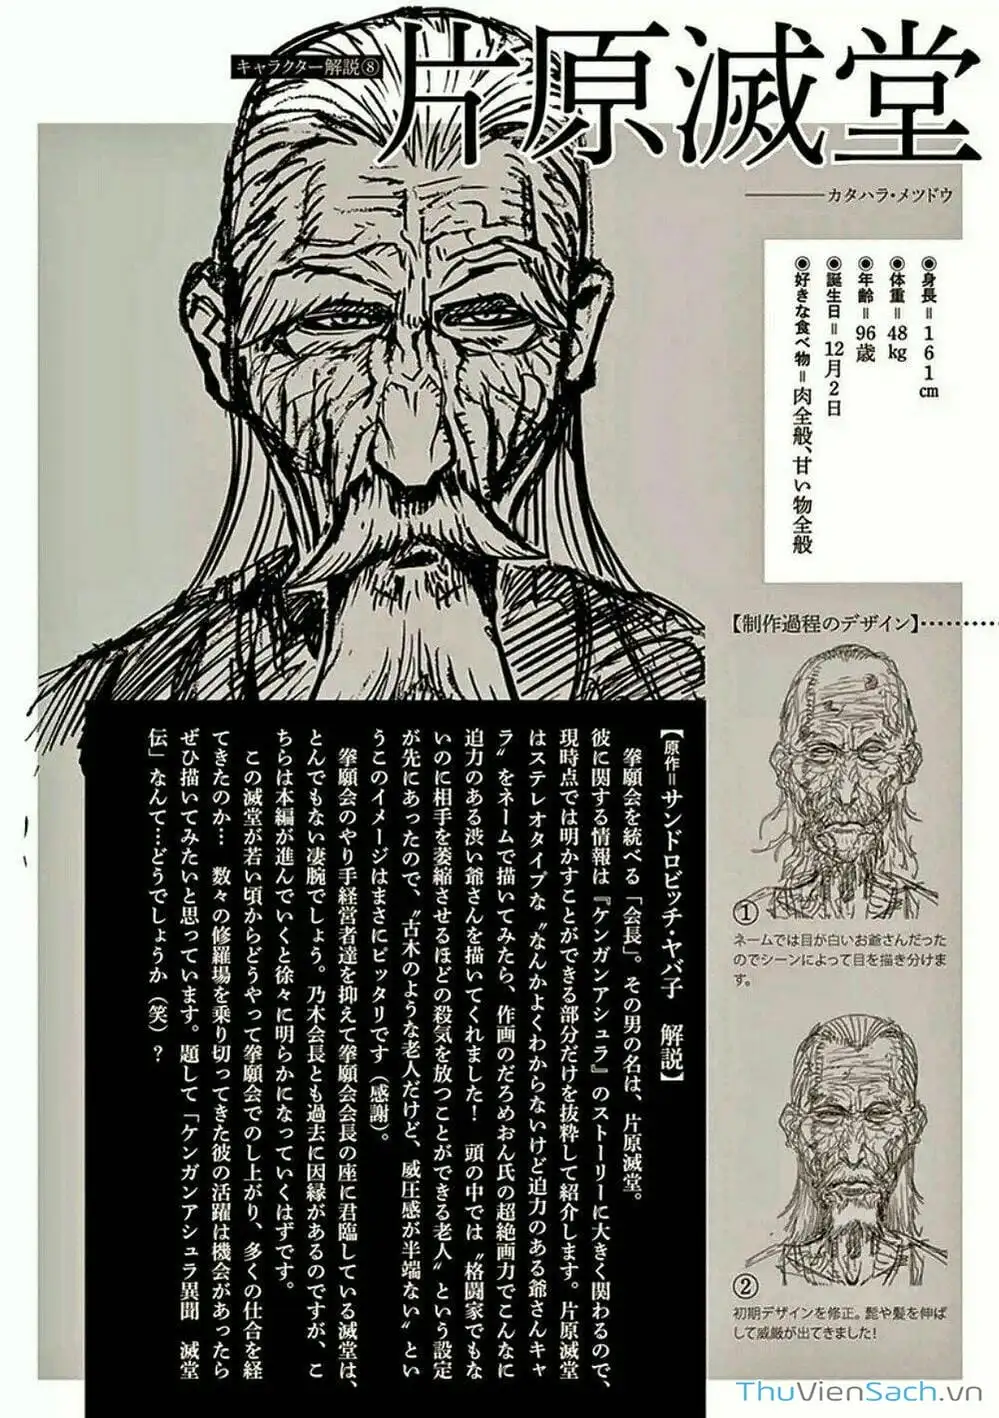 キャラクター解説⑧
片原滅堂
カタハラ・メツドウ
◉身長＝161㎝
◉体重＝48㎏
◉年齢＝96歳
◉誕生日＝12月2日
◉好きな食べ物＝肉全般、甘い物全般
【制作過程のデザイン】
①
ネームでは目が白いお爺さんだった
のでシーンによって目を描き分けま
す。
②
初期デザインを修正。髭や髪を伸ば
して威厳が出てきました!
【原作＝サンドロビッチ・ヤバ子　解説】
拳願会を統べる「会長」。その男の名は、片原滅堂。
彼に関する情報は『ケンガンアシュラ』のストーリーに大きく関わるので、
現時点では明かすことができる部分だけを抜粋して紹介します。片原滅堂
はステレオタイプな〝なんかよくわからないけど迫力のある爺さんキャ
ラ〟をネームで描いてみたら、作画のだろめおん氏の超絶画力でこんなに
迫力のある渋い爺さんを描いてくれました！　頭の中では〝格闘家でもな
いのに相手を萎縮させるほどの殺気を放つことができる老人〟という設定
が先にあったので、〝古木のような老人だけど、威圧感が半端ない〟とい
うこのイメージはまさにピッタリです（感謝）。
拳願会のやり手経営者達を抑えて拳願会会長の座に君臨している滅堂は、
とんでもない凄腕でしょう。乃木会長とも過去に因縁があるのですが、こ
ちらは本編が進んでいくと徐々に明らかになっていくはずです。
この滅堂が若い頃からどうやって拳願会でのし上がり、多くの仕合を経
てきたのか…　数々の修羅場を乗り切ってきた彼の活躍は機会があったら
ぜひ描いてみたいと思っています。題して「ケンガンアシュラ異聞　滅堂
伝」なんて…どうでしょうか（笑）？
ThuVienSach.vn